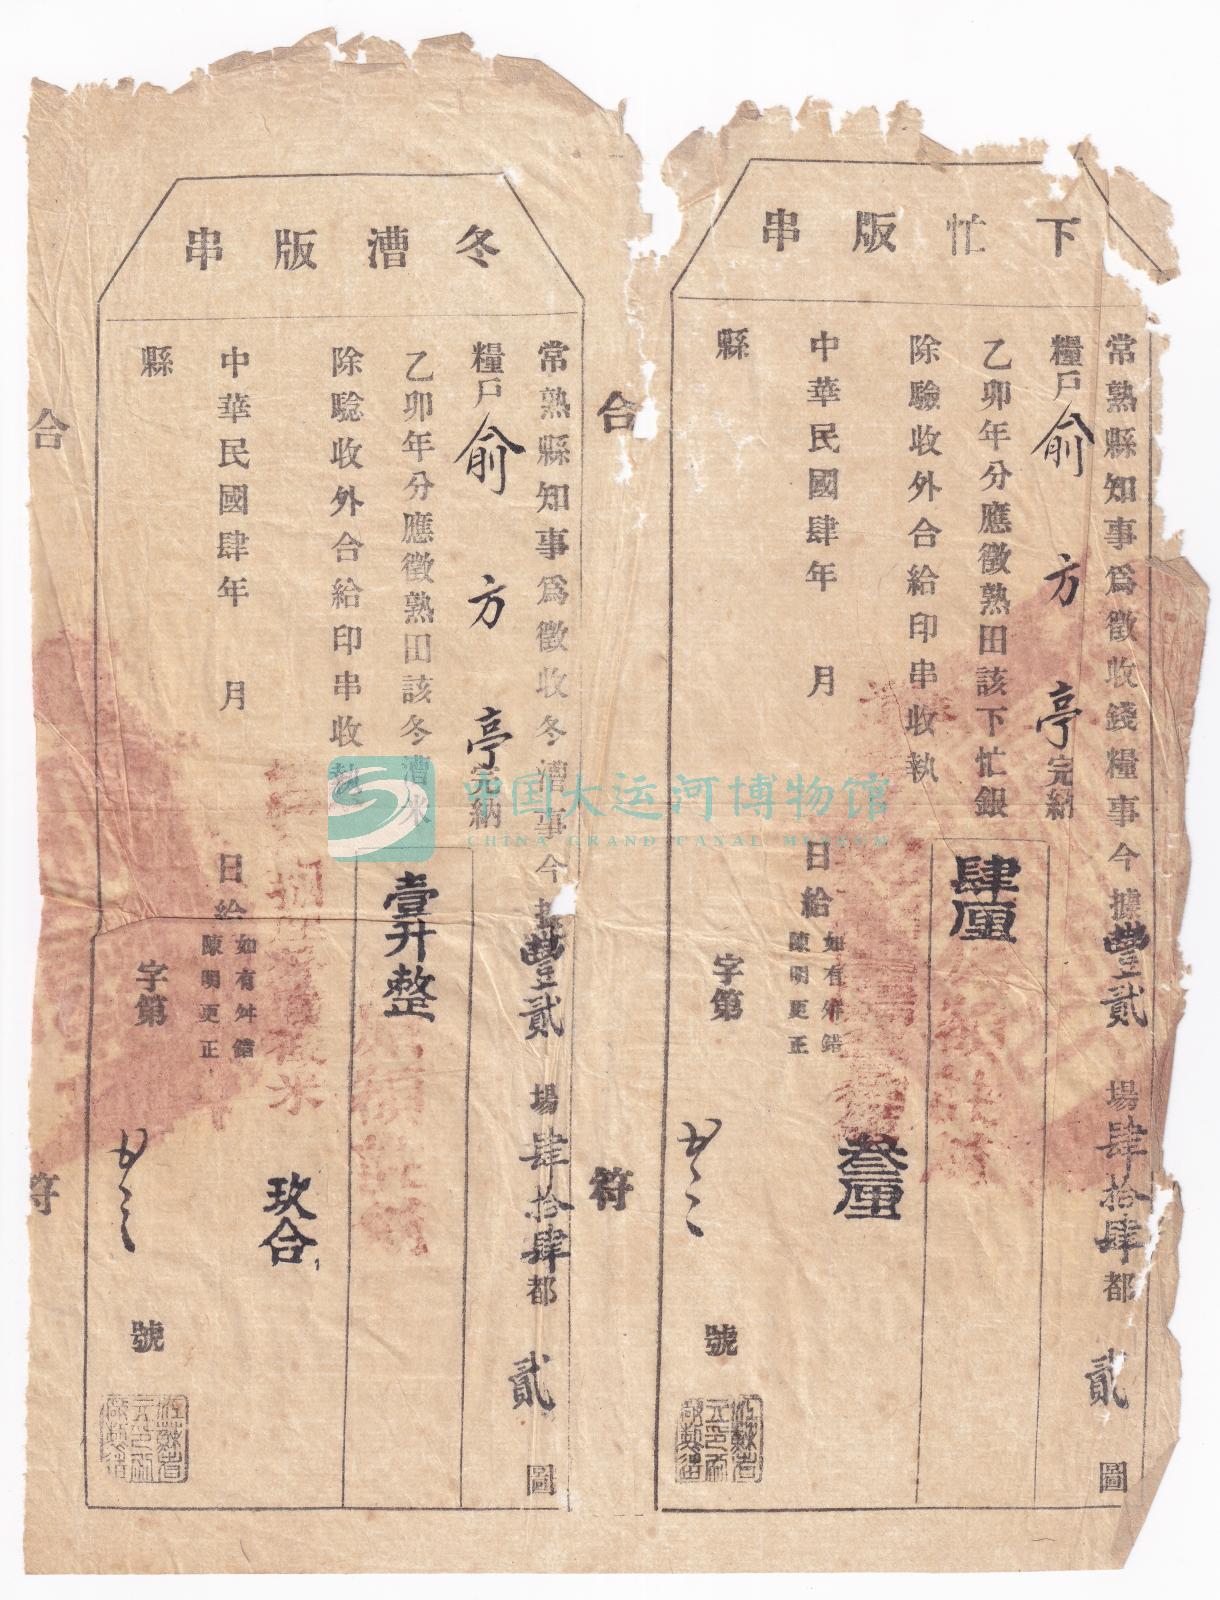 下忙版串
常熟縣知事爲徵收錢糧事今據豐貳場肆拾肆都貳圖
糧戶俞方亭完納
乙卯年分應徵熟田該下忙銀肆厘
除驗收外合給印串收執
叁厘
中華民國肆年 月 日給
如有舛錯
陳明更正
縣 字第 號
合符
冬漕版串
常熟縣知事爲徵收冬漕事今據豐貳場肆拾肆都貳圖
糧戶俞方亭完納
乙卯年分應徵熟田該冬漕米壹升整
除驗收外合給印串收執
玖合
中華民國肆年 月 日給
如有舛錯
陳明更正
縣 字第 號
合符
中国大运河博物馆
CHINA GRAND CANAL MUSEUM